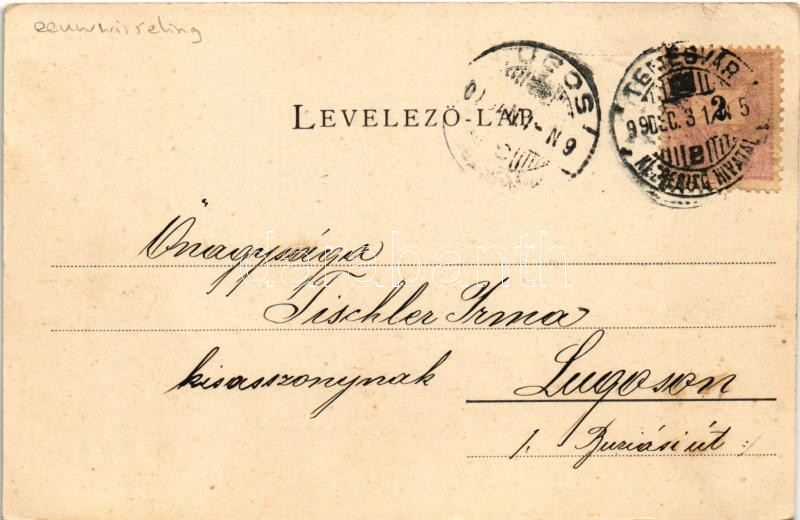 eeuwwisseling
LEVELEZŐ-LAP.
UGOS
TEMESVÁR
99DEC. 3 1
Őnagysága
Tischler Irma
kisasszonynak
Lugoson
/: Buziási út :/
darabanth